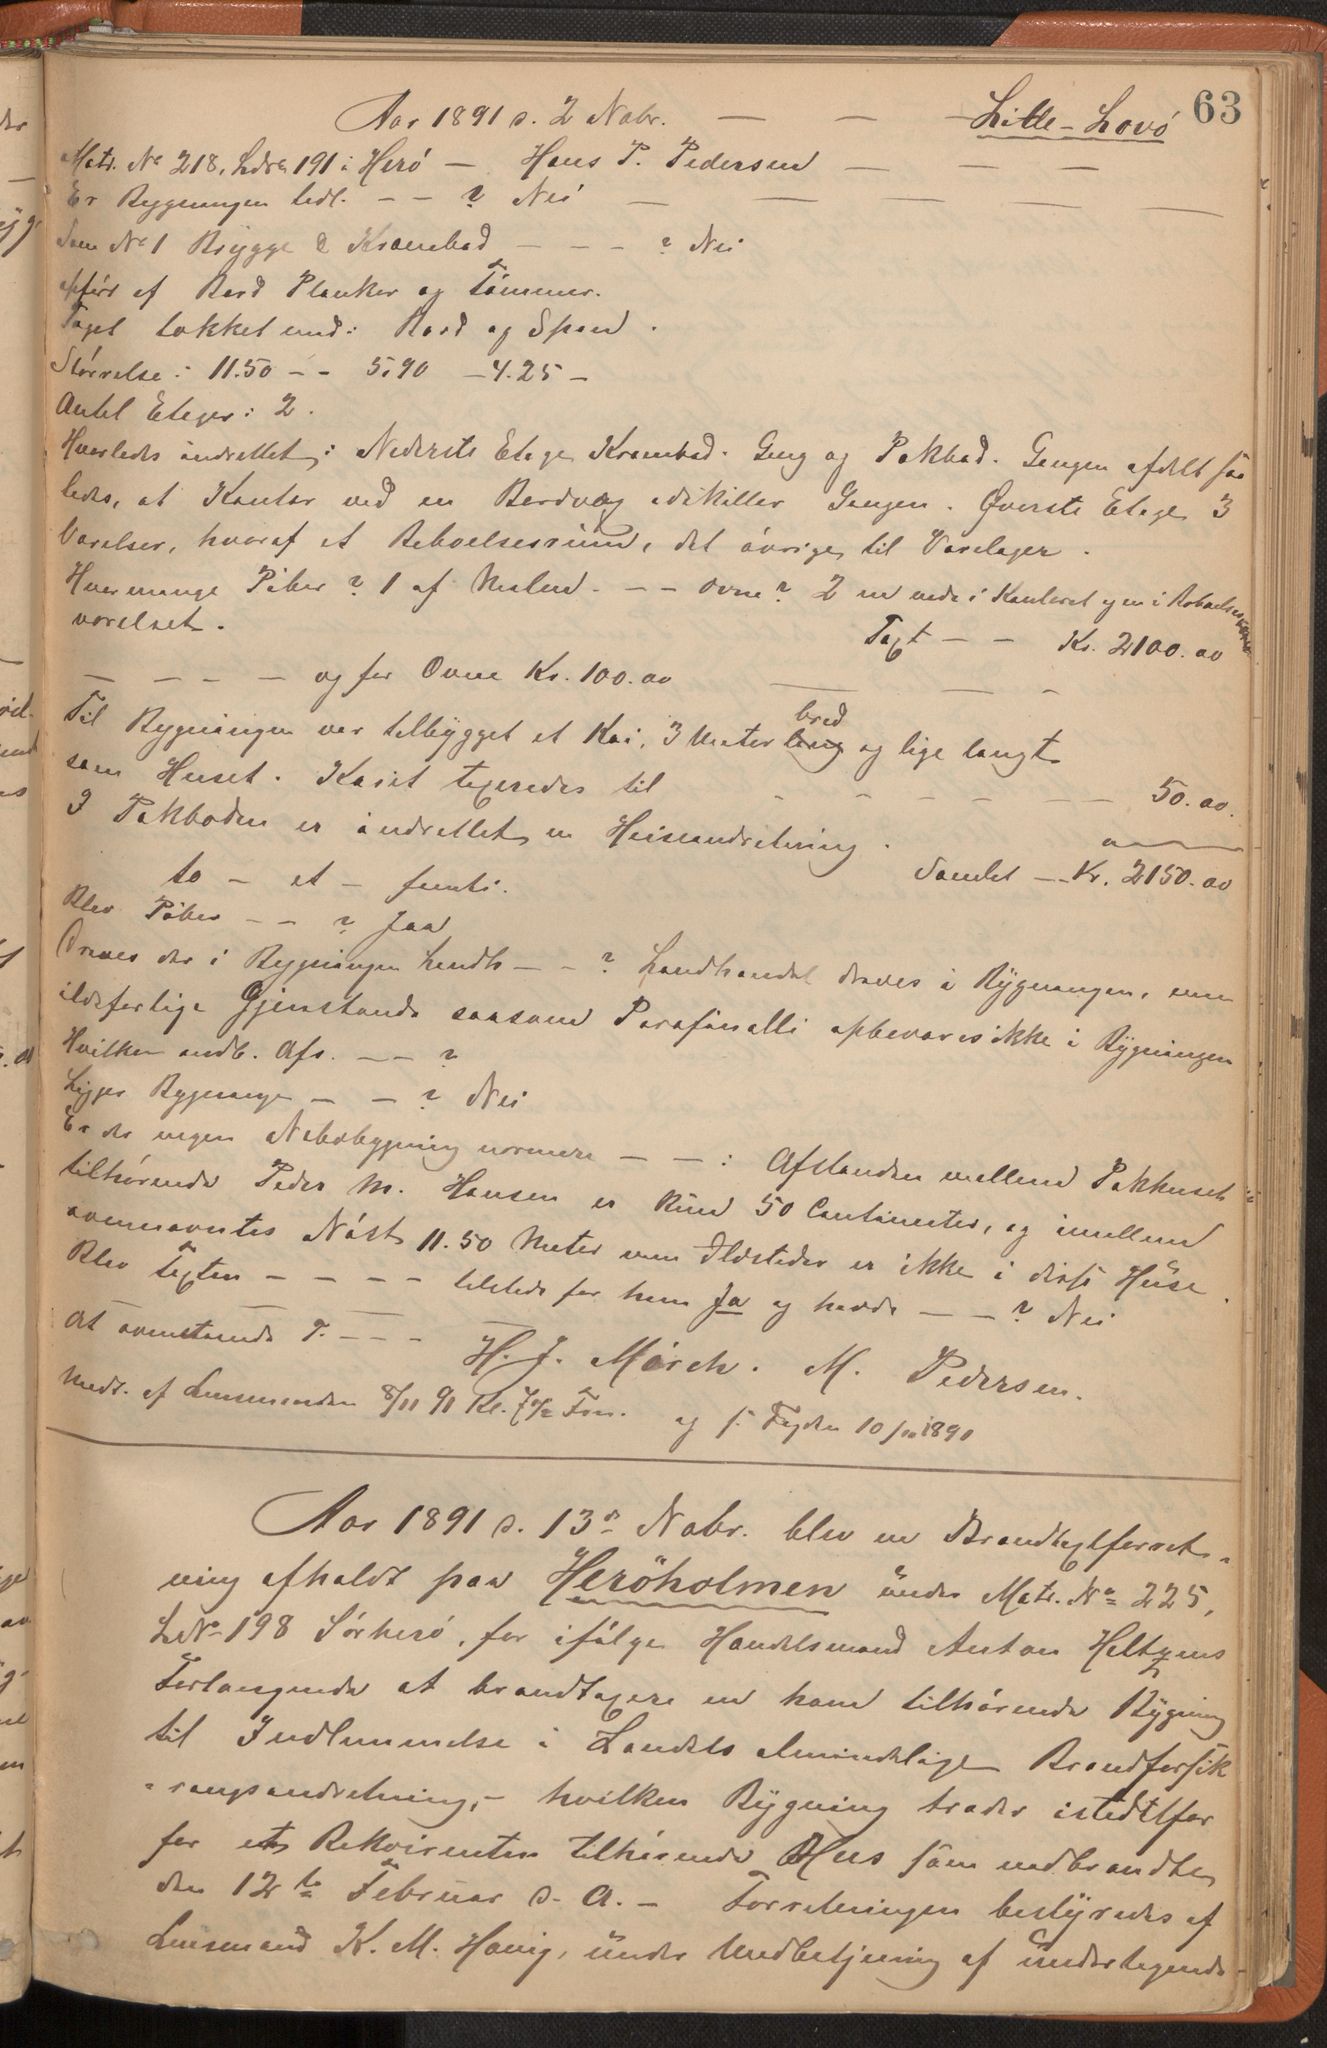 63
Aar 1891 d. 2 Nobr. — — — Lille-Lovö
Matr. No 218, Ldno 191 i Herö — Hans P. Pedersen — — —
Er Bygningen tidl. — — ? Nei — — — —
Som No 1 Brygge & Krambod — — — ? Nei
opført af Bord Planker og Tömmer.
Taget tækket med: Bord og Spon.
Störrelse: 11.50 — — 5.90 — 4.25 —
Antal Etager: 2.
Hvorledes indrettet: Nederste Etage Krambod. Gang og Pakbod. Gangen afdelt saa
ledes, at Kontor ved en Bordvæg adskiller Gangen. Øverste Etage 3
Værelser, hvoraf et Beboelsesrum, det övrige til Varelager.
Hvor mange Piber? 1 af Mursten. — — Ovne? 2 en nede i Kontoret og en i Beboelses
værelset. Taxt — — Kr. 2100.00
— — — — og for Ovne Kr. 100.00 — — —
Til Bygningen var tilbygget et Kai, 3 Meter lang bred og lige langt
som Huset. Kaiet taxeredes til — — — — — — 50.00.
I Pakboden er indrettet en Heiseindretning.
Samlet — Kr. 2150.00
to — et — femti.
Blev Piber — — ? Jaa
Dreves der i Bygningen Landh — — ? Landhandel dreves i Bygningen, men
ildsfarlige Gjenstande saasom Parafinolli opbevares ikke i Bygningen
Hvilken andb. Afs. — — ?
Ligger Bygningen — — ? Nei
Er der nogen Nabobygning nærmere — — : Afstanden mellem Pakhuset
tilhörende Peder M. Hansen er kun 50 Centimeter, og imellem
ovennævntes Nöst 11.50 Meter men Ildsteder er ikke i disse Huse.
Blev Taxten — — — — tilstede for ham Ja og havde — — ? Nei
At ovenstaaende T. — — —
H. J. Mörch. M. Pedersen.
Medt. af Lensmanden 8/11 91 Kl. 7 1/2 Form. og f. Fogden 10/11 1891
Aar 1891 d. 13de Nobr. blev en Brandtaxtforret-
ning afholdt paa Heröholmen under Matr. No 225,
LNo 198 Sörherö, for ifölge Handelsmand Anton Heltzens
Forlangende at brandtaxere en ham tilhörende Bygning
til Indlemmelse i Landets almindelige Brandforsik
-ringsindretning, — hvilken Bygning træder istedetfor
for et Rekvirenten tilhörende Hus som nedbrændte
den 12te Februar d. A. — Forretningen bestyredes af
Lensmand K. M. Havig, under Medbetjening af underlegende